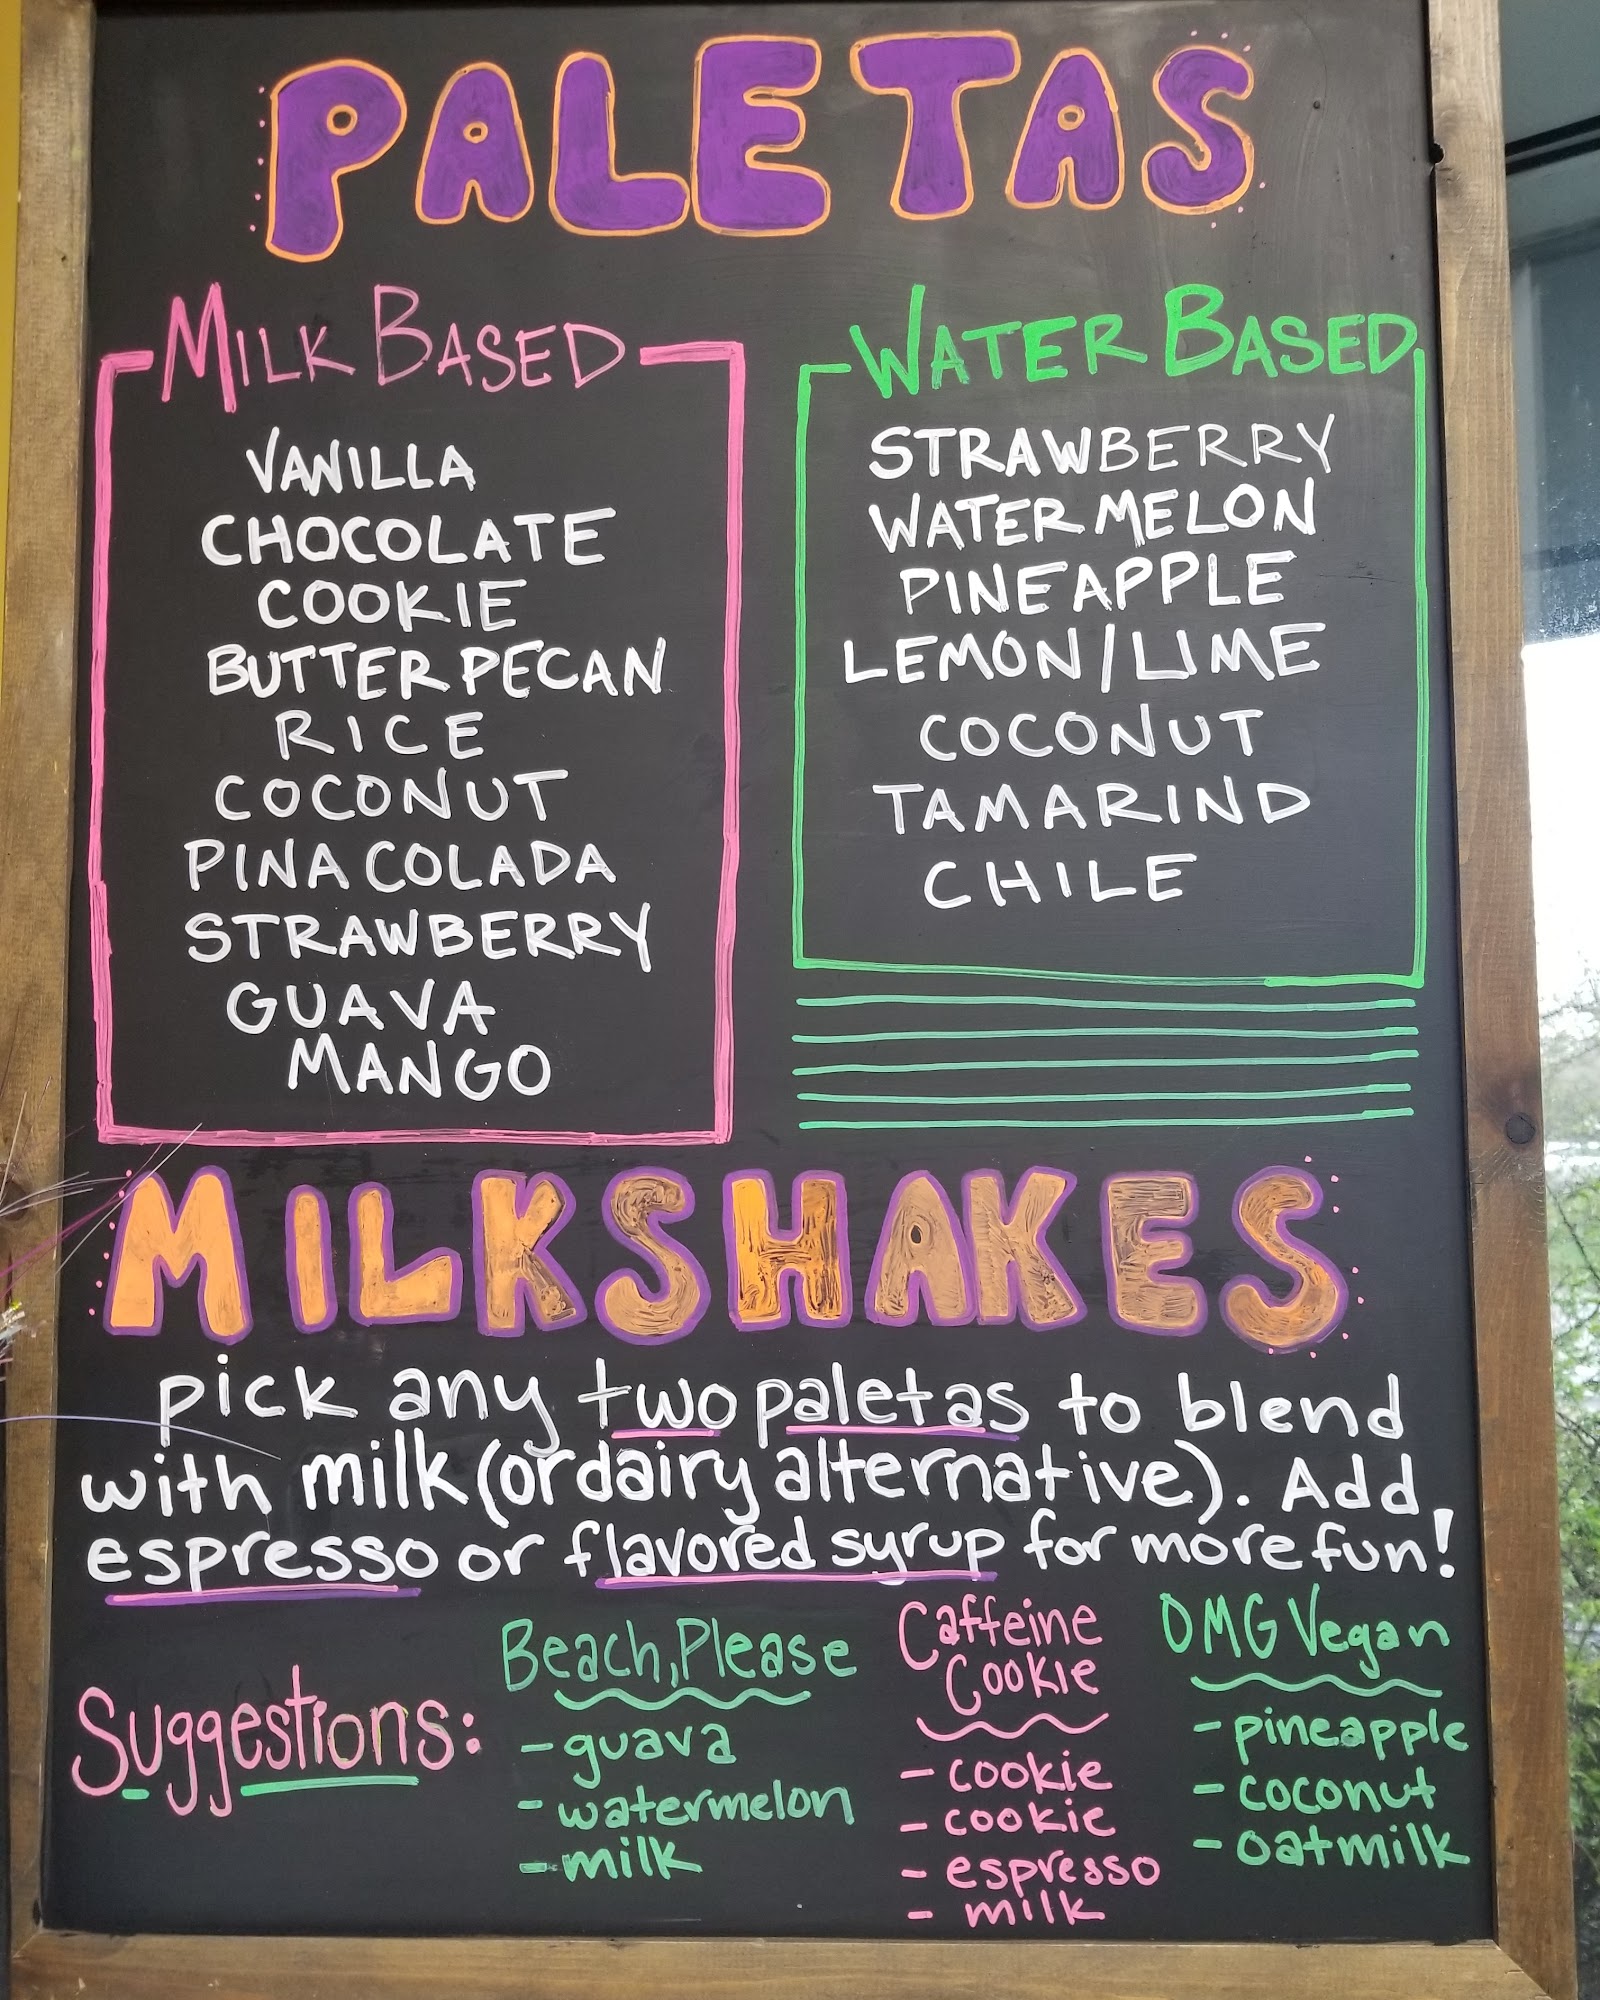 PALETAS
MILK BASED
VANILLA
CHOCOLATE
COOKIE
BUTTER PECAN
RICE
COCONUT
PINA COLADA
STRAWBERRY
GUAVA
MANGO
WATER BASED
STRAWBERRY
WATERMELON
PINEAPPLE
LEMON/LIME
COCONUT
TAMARIND
CHILE
MILKSHAKES
pick any two paletas to blend
with milk (or dairy alternative). Add
espresso or flavored syrup for more fun!
Suggestions:
Beach, Please
- guava
- watermelon
- milk
Caffeine
Cookie
- cookie
- cookie
- espresso
- milk
OMG Vegan
- pineapple
- coconut
- oatmilk